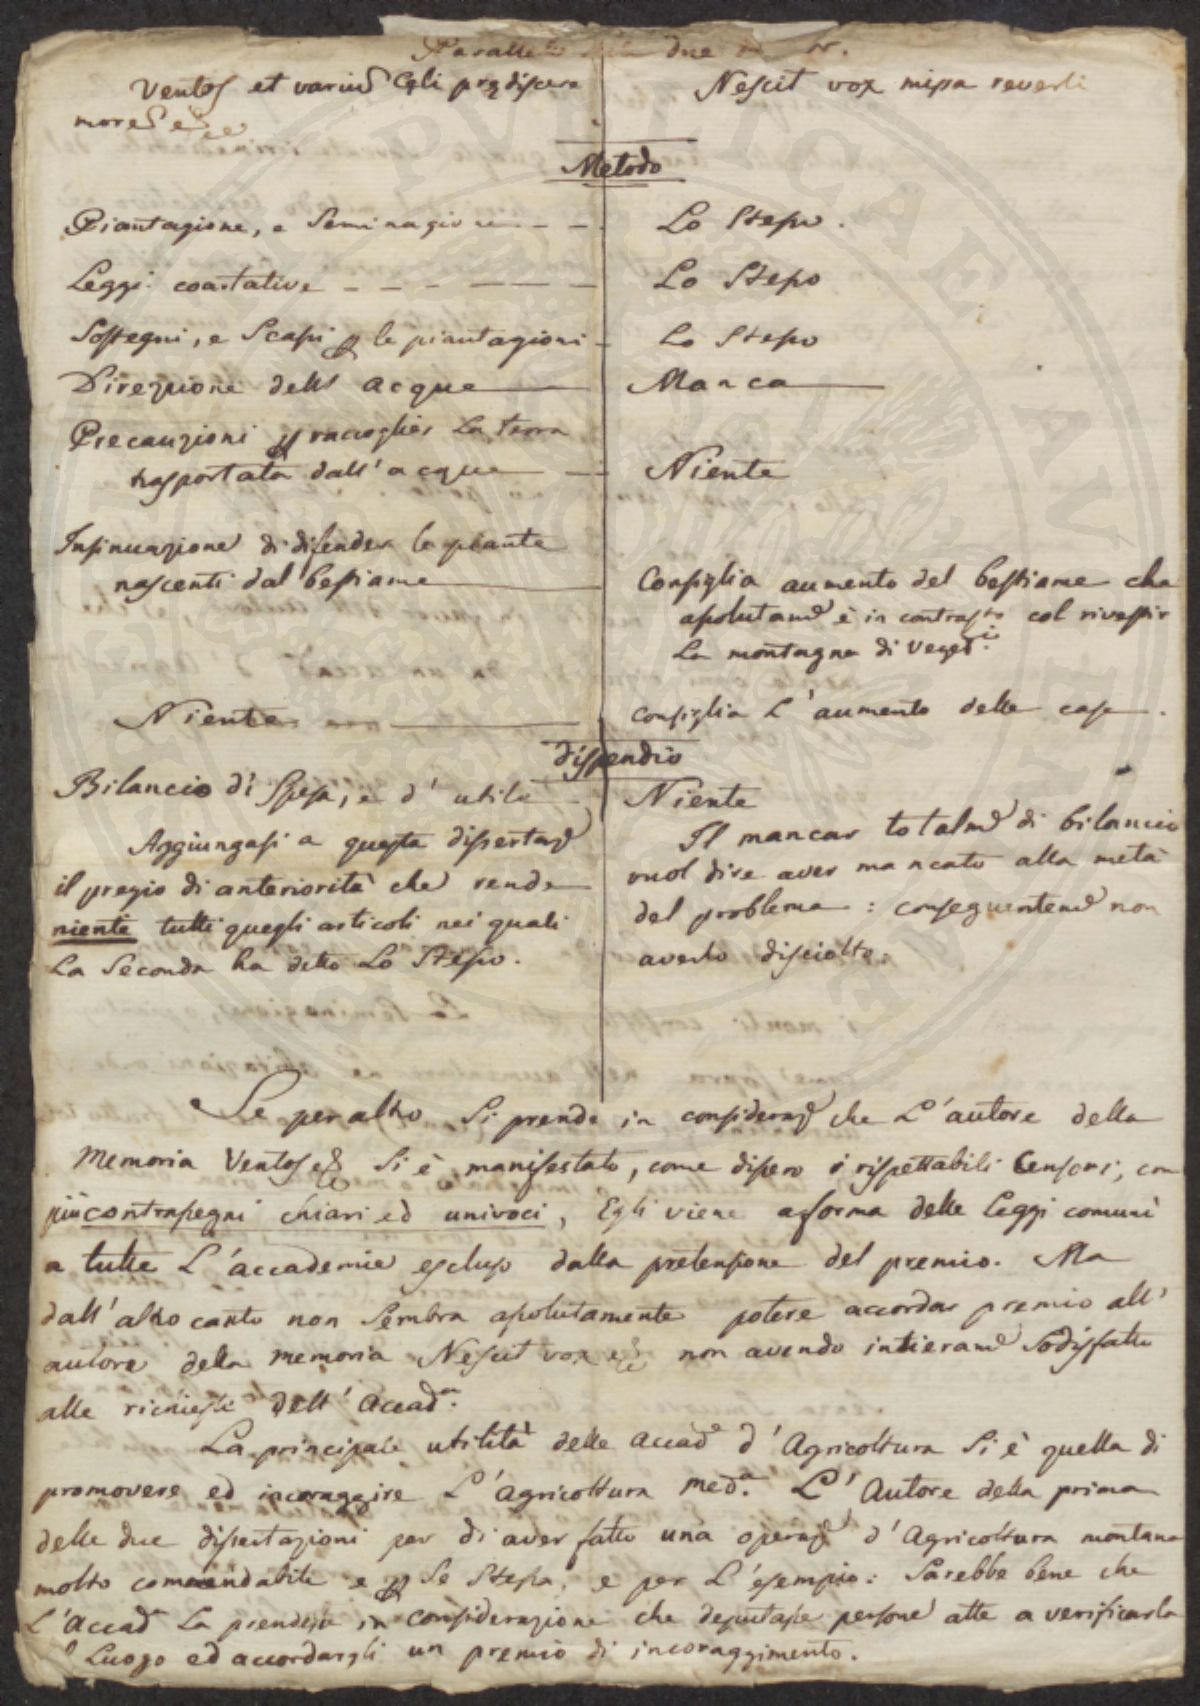 Parallelo due
Ventos et varium Cęli prędiscere
mores ec
Nescit vox missa reverti
Metodo
Piantagione, e Seminagione - - -
Lo Stesso.
Leggi coartative - - - - - -
Lo Stesso
Sostegni, e Scassi p le piantagioni -
Lo Stesso
Direzzione dell' acque
Manca
Precauzioni p raccoglier la terra
trasportata dall' acque
Niente
Insinuazione di difender le piante
nascenti dal bestiame
Consiglia aumento del bestiame che
assolutamᵉ è in contrasto col rivestir
la montagna di veget.ⁱ
Niente
consiglia l'aumento delle case.
dispendio
Bilancio di Spesa, e d' utile
Niente
Aggiungasi a questa dissertazᵉ
il pregio di anteriorità che rende
niente tutti quegli articoli nei quali
la Seconda ha detto Lo Stesso.
Il mancar totalmᵉ di bilancio
vuol dire aver mancato alla metà
del problema: conseguentemᵉ non
averlo disciolto.
Se per altro Si prende in considerazᵉ che L'autore della
Memoria Ventos ec Si è manifestato, come dissero i rispettabili Censori, con
più contrassegni chiari ed univoci, Egli viene a forma delle Leggi comuni
a tutte L'accademie escluso dalla pretensione del premio. Ma
dall' altro canto non Sembra assolutamente potere accordar premio all'
autore della memoria Nescit vox ec non avendo intieramᵉ Sodisfatto
alle richieste dell' Accad.ᵃ
La principale utilità delle accadᵉ d' Agricoltura Si è quella di
promovere ed incoraggire L' agricoltura medᵃ. L' Autore della prima
delle due dissertazioni per di aver fatto una operazᵉ d' Agricoltura montana
molto commendabile e p Se Stessa, e per L' esempio: Sarebbe bene che
L' Accadᵃ la prendesse in considerazione che deputasse persone atte a verificarla
Luogo ed accordargli un premio di incoraggimento.